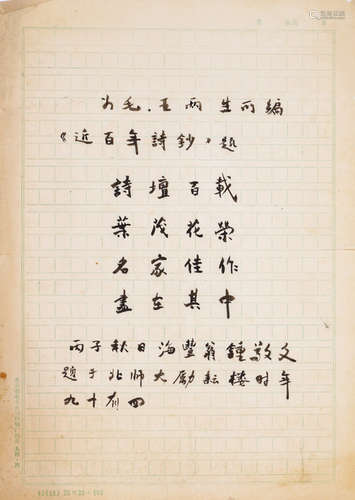 为毛.王两生所编
《近百年詩鈔》题
詩壇百載
葉茂花榮
名家佳作
盡在其中
丙子秋日海豐翁鍾敬文
题于北师大励耘楼时年
九十有四